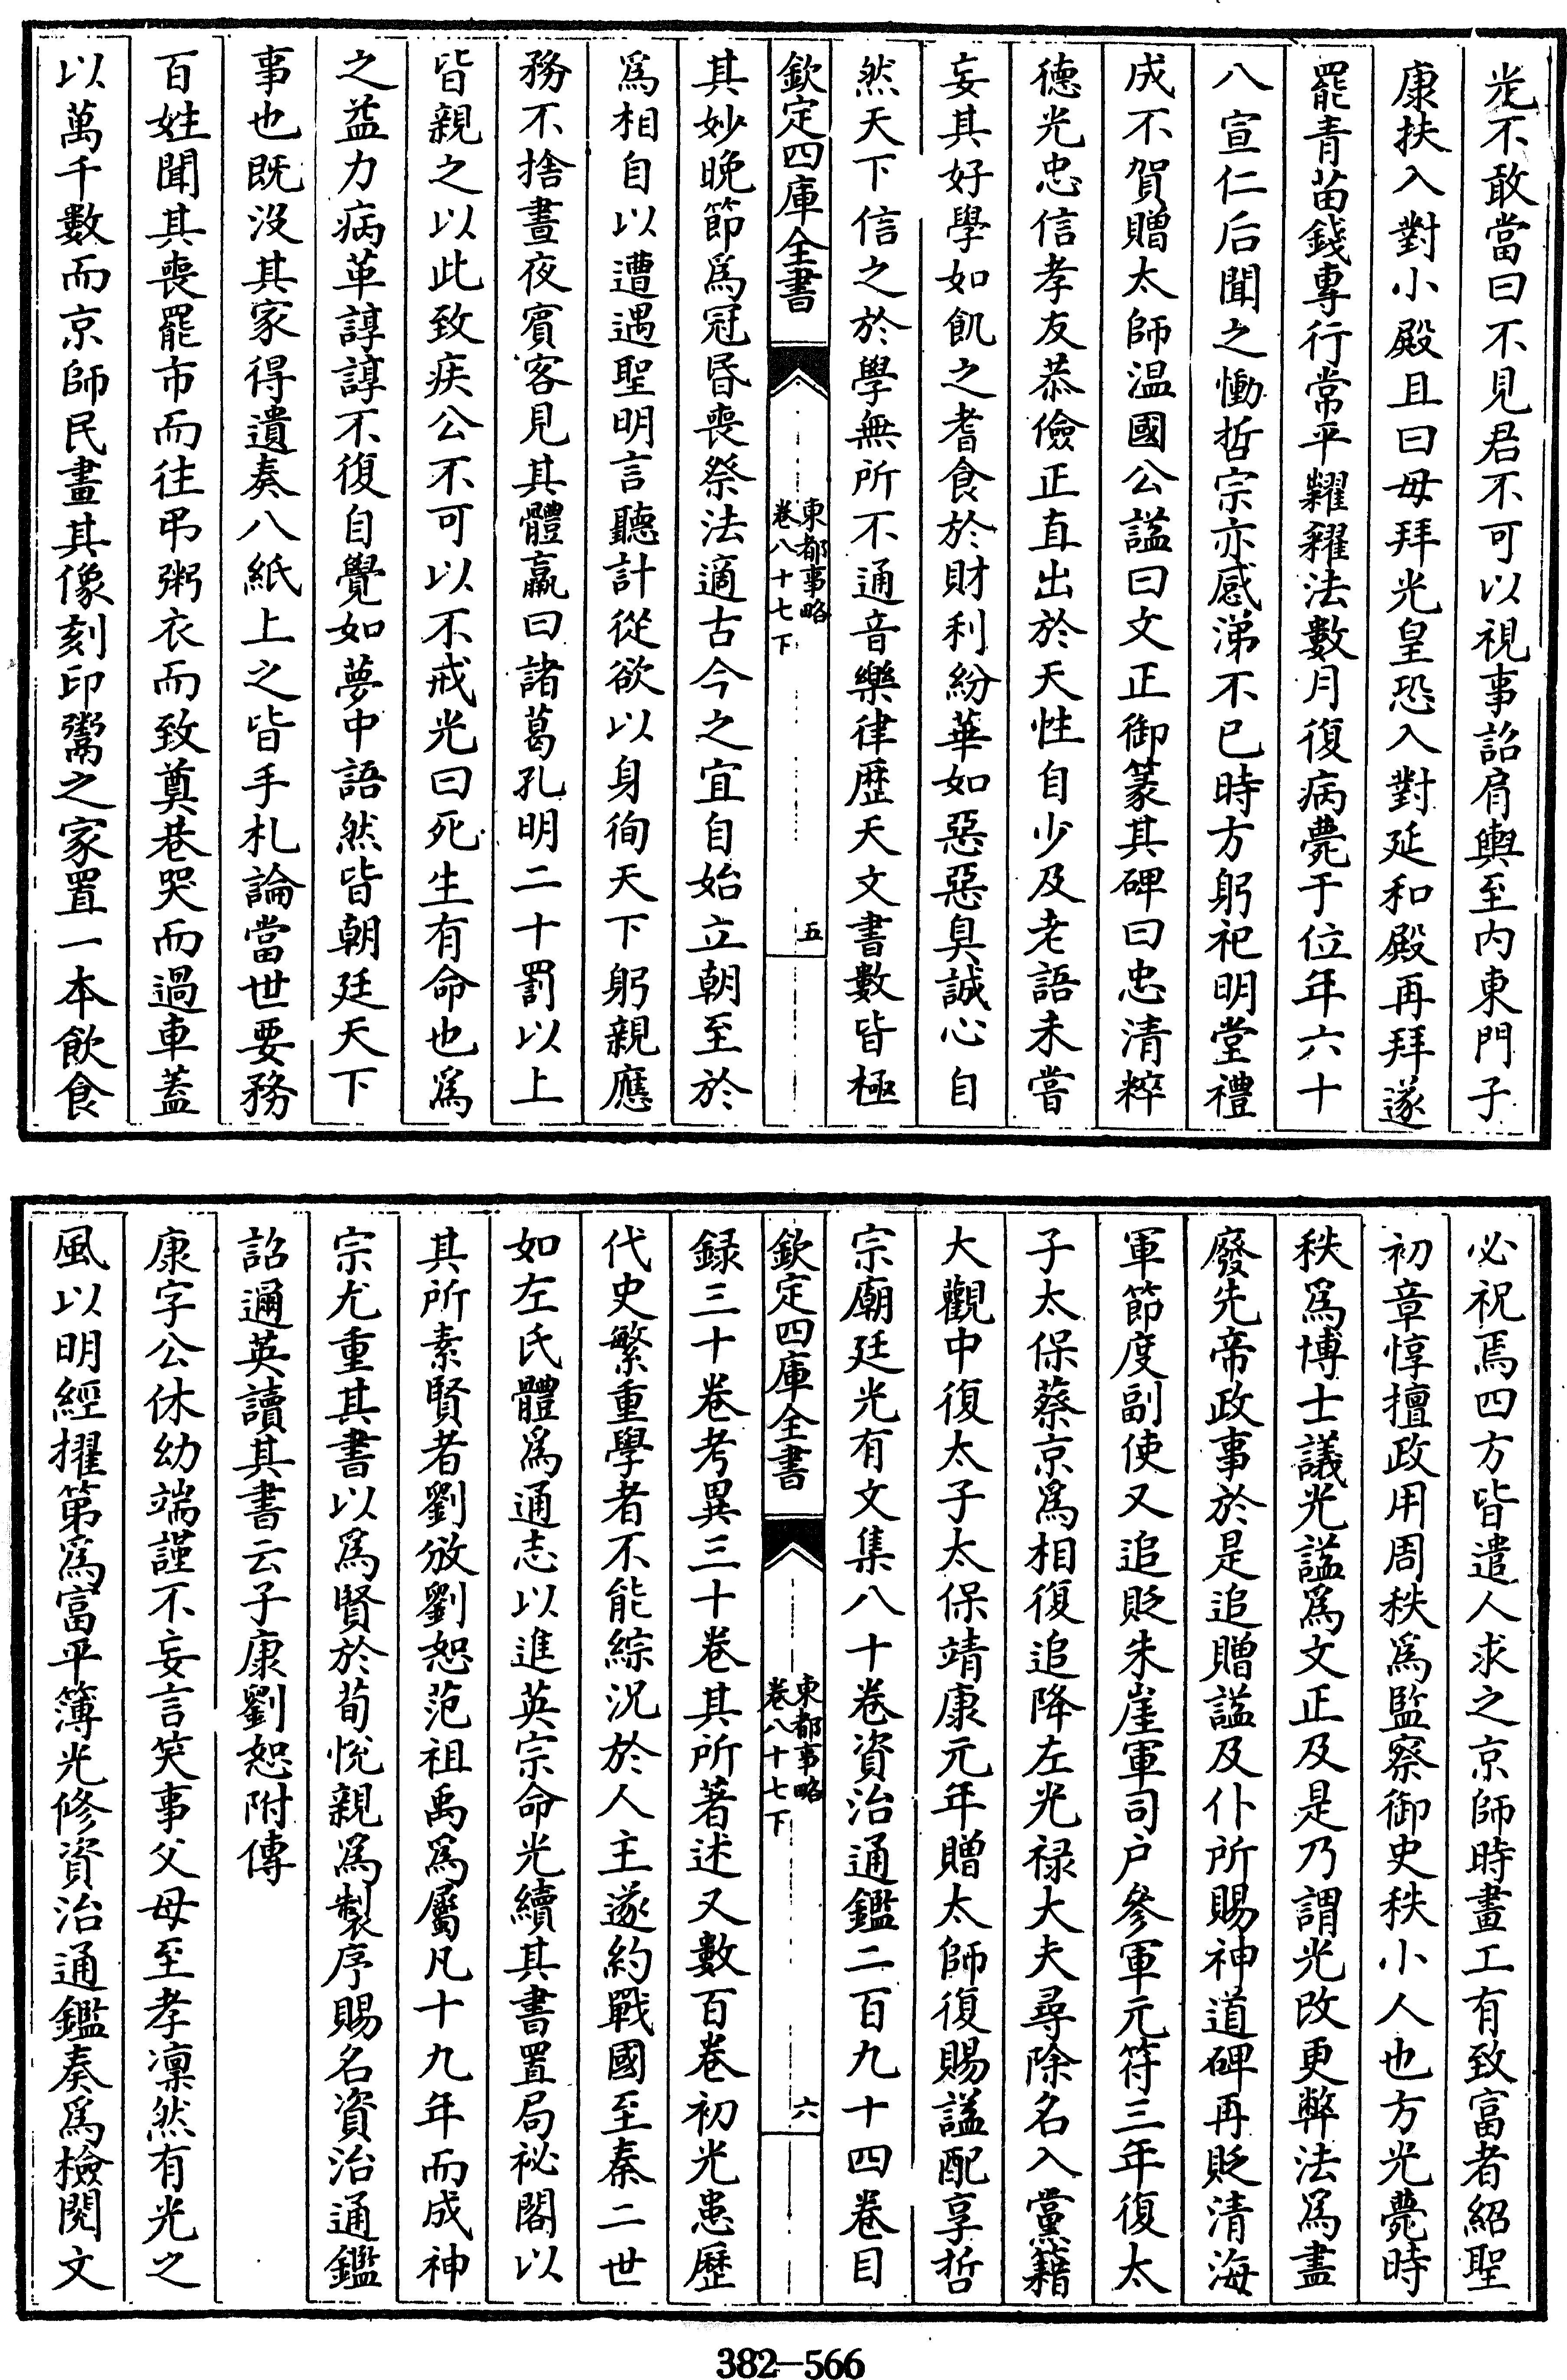 光不敢當曰不見君不可以視事詔肩輿至内東門子
康扶入對小殿且曰毋拜光皇恐入對延和殿再拜遂
罷青苗錢專行常平糶糴法數月復病薨于位年六十
八宣仁后聞之慟哲宗亦感涕不已時方躬祀明堂禮
成不賀贈太師温國公謚曰文正御篆其碑曰忠清粹
德光忠信孝友恭儉正直出於天性自少及老語未嘗
妄其好學如飢之耆食於財利紛華如惡惡臭誠心自
然天下信之於學無所不通音樂律歴天文書數皆極
欽定四庫全書
東都事略
卷八十七下
五
其妙晚節爲冠昏喪祭法適古今之宜自始立朝至於
爲相自以遭遇聖明言聽計從欲以身徇天下躬親應
務不捨晝夜賓客見其體羸曰諸葛孔明二十罰以上
皆親之以此致疾公不可以不戒光曰死生有命也爲
之益力病革諄諄不復自覺如夢中語然皆朝廷天下
事也既没其家得遺奏八紙上之皆手札論當世要務
百姓聞其喪罷市而往弔粥衣而致奠巷哭而過車蓋
以萬千數而京師民畫其像刻印鬻之家置一本飲食
必祝焉四方皆遣人求之京師時畫工有致富者紹聖
初章惇擅政用周秩爲監察御史秩小人也方光薨時
秩爲博士議光謚爲文正及是乃謂光改更弊法爲盡
廢先帝政事於是追贈謚及仆所賜神道碑再貶清海
軍節度副使又追貶朱崖軍司户參軍元符三年復太
子太保蔡京爲相復追降左光禄大夫尋除名入黨籍
大觀中復太子太保靖康元年贈太師復賜謚配享哲
宗廟廷光有文集八十卷資治通鑑二百九十四卷目
欽定四庫全書
東都事略
卷八十七下
六
録三十卷考異三十卷其所著述又數百卷初光患歷
代史繁重學者不能綜況於人主遂約戰國至秦二世
如左氏體爲通志以進英宗命光續其書置局祕閣以
其所素賢者劉攽劉恕范祖禹爲屬凡十九年而成神
宗尤重其書以爲賢於荀悅親爲製序賜名資治通鑑
詔邇英讀其書云子康劉恕附傳
康字公休幼端謹不妄言笑事父母至孝凛然有光之
風以明經擢第爲富平簿光修資治通鑑奏爲檢閱文
382—566